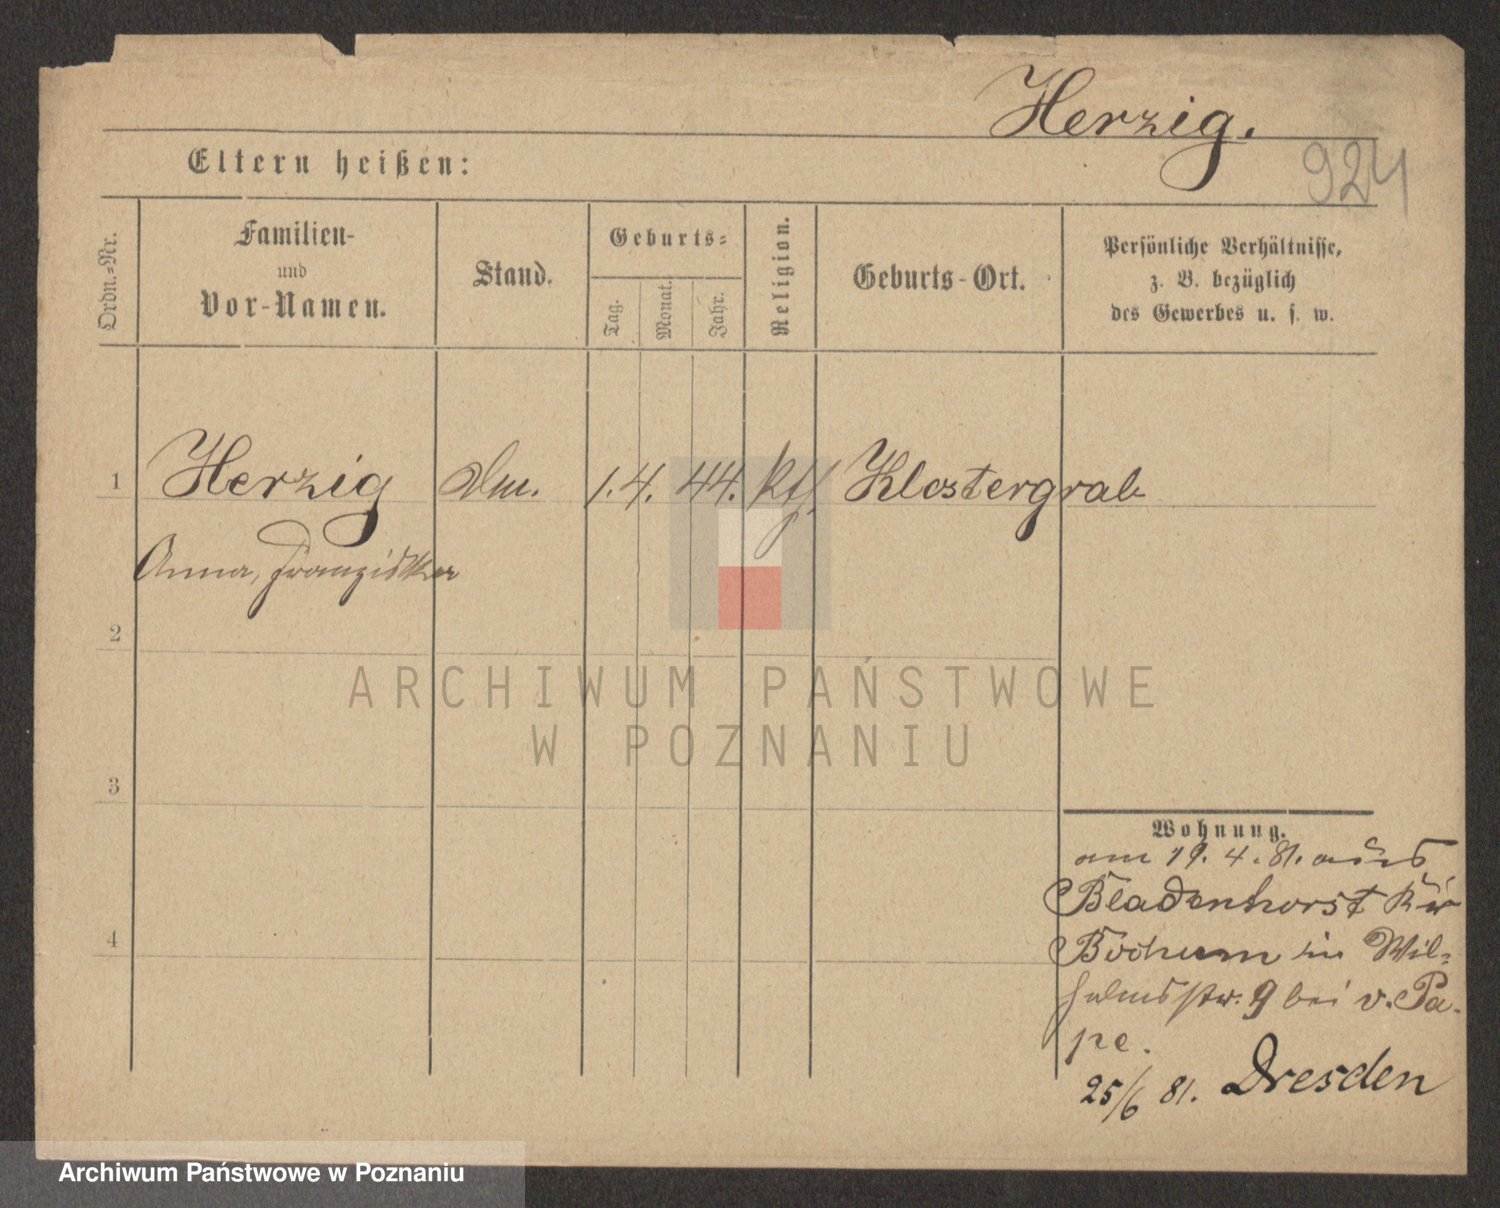 Herzig.
924
Eltern heißen:
Ordn.-Nr.
Familien-
und
Vor-Namen.
Stand.
Geburts-
Tag.
Monat.
Jahr.
Religion.
Geburts-Ort.
Persönliche Verhältnisse,
z. B. bezüglich
des Gewerbes u. s. w.
1 Herzig 1. 4. 44. kth. Klostergrab
Anna, Franziska
2
ARCHIWUM PAŃSTWOWE
W POZNANIU
3
Wohnung.
am 19. 4. 81. aus
Bladenhorst Kr
4
Bochum in Wil-
helmsstr. 9 bei v. Pa-
pe.
25/6 81. Dresden
Archiwum Państwowe w Poznaniu